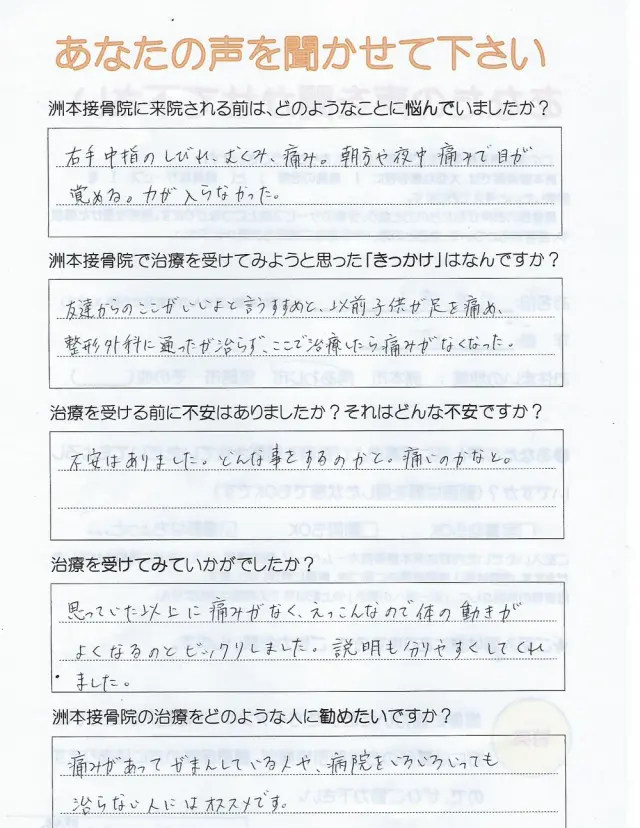 あなたの声を聞かせて下さい
洲本接骨院に来院される前は、どのようなことに悩んでいましたか？
右手中指のしびれ、むくみ、痛み。朝方や夜中 痛みで目が
覚める。力が入らなかった。
洲本接骨院で治療を受けてみようと思った「きっかけ」はなんですか？
友達からのここがいいよと言うすすめと、以前子供が足を痛め、
整形外科に通ったが治らず、ここで治療したら痛みがなくなった。
治療を受ける前に不安はありましたか？それはどんな不安ですか？
不安はありました。どんな事をするのかと。痛いのかなと。
治療を受けてみていかがでしたか？
思っていた以上に痛みがなく、えっこんなので体の動きが
よくなるのとビックリしました。説明も分りやすくしてくれ
ました。
洲本接骨院の治療をどのような人に勧めたいですか？
痛みがあってがまんしている人や、病院をいろいろいっても
治らない人にはオススメです。